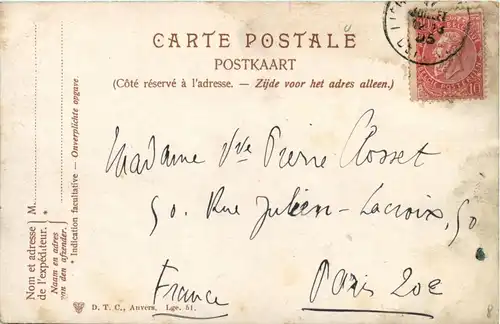 CARTE POSTALE
POSTKAART
(Côté réservé à l'adresse. — Zijde voor het adres alleen.)
JUILLET
05
10
Madame Vve Pierre Closset
50, Rue Julien-Lacroix, 50
France Paris 20e
Nom et adresse de l'expéditeur.
Naam en adres van den afzender.
M.
* Indication facultative — Onverplichte opgave.
D. T. C., Anvers, Lge. 51.